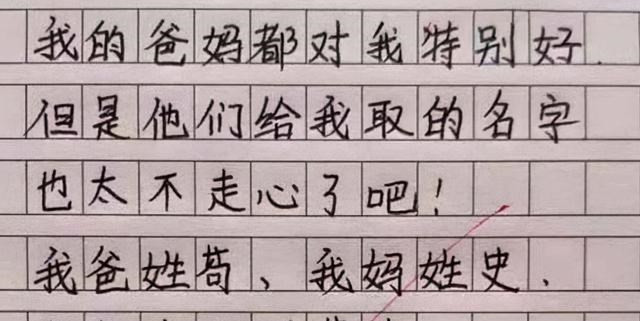 我的爸妈都对我特别好.
但是他们给我取的名字
也太不走心了吧!
我爸姓苟、我妈姓史.